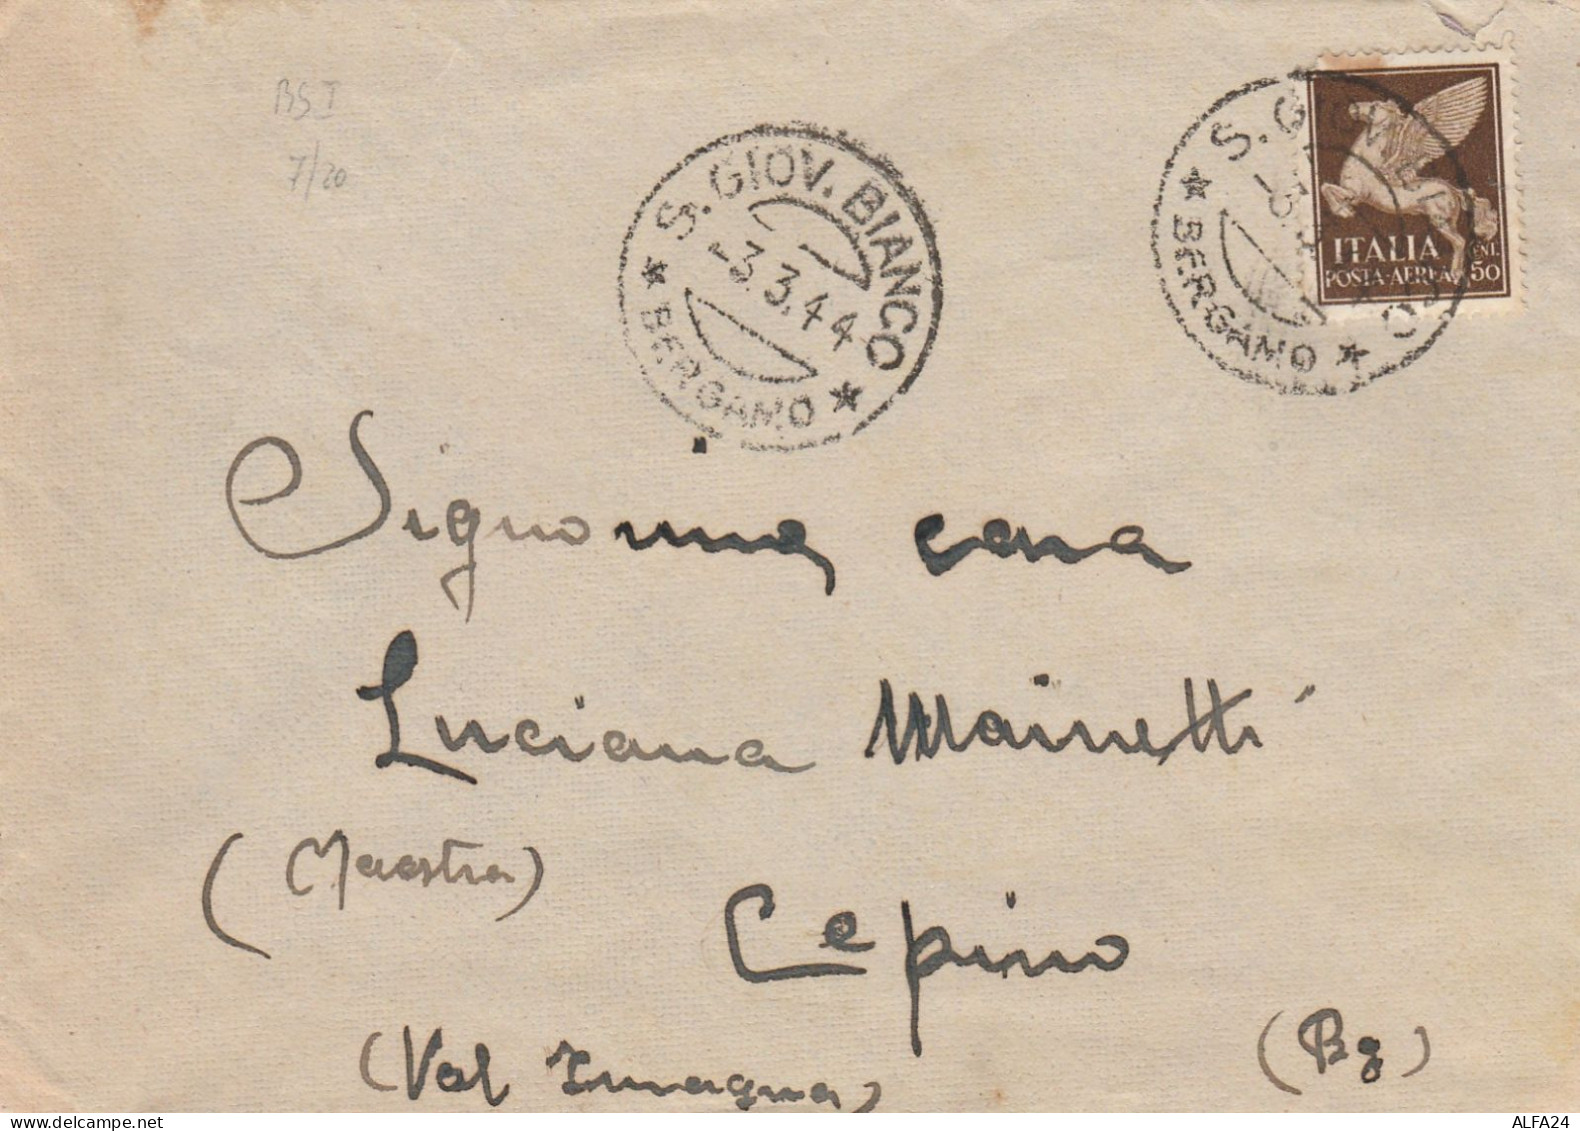 BS I
7/20
S. GIOV. BIANCO
-3.3.44
★ BERGAMO ★
S. GIOV. BIANCO
★ BERGAMO ★
ITALIA
POSTA·AEREA
CENT.
50
Signorina cara
Luciana Mainetti
(Maestra)
Cepino
(Val Imagna)
(Bg)
ALFA24